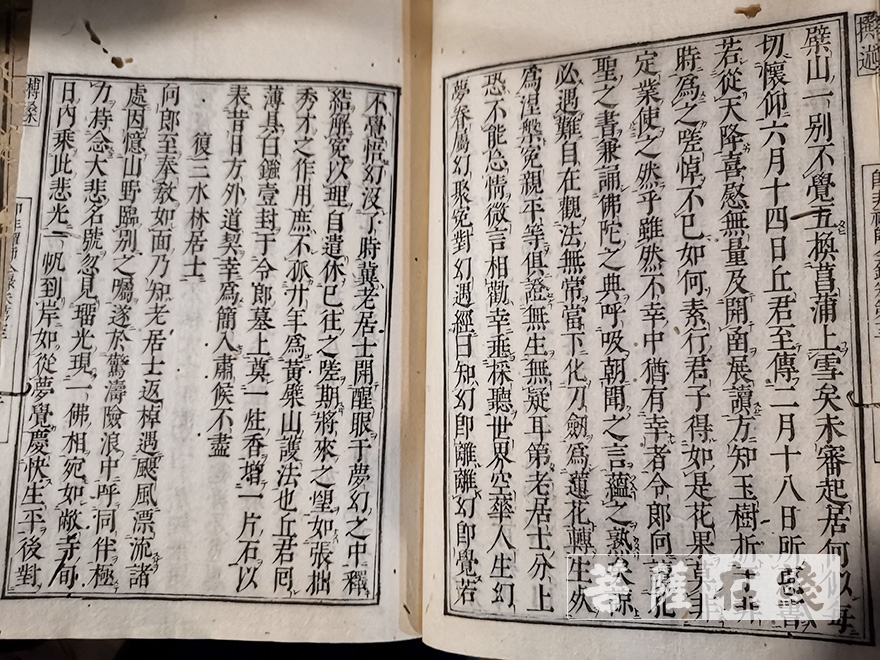 檗山一別不覺五換菖蒲上雪矣未審起居何似每
切懷仰六月十四日丘君至傳二月十八日所
若從天降喜慰無量及開函展讀方知玉樹折
時為之嗟悼不已如何素行君子得如是花果莫非
定業使之然乎雖然不幸中猶有幸者令郎向
聖之書兼誦佛陀之典呼吸朝聞之言蘊之熟矣
必遇難自在觀法無常當下化刀劒為蓮花轉生死
為涅槃冤親平等俱證無生無疑耳第老居士分上
恐不能忘情微言相勸幸垂採聽世界空華人生幻
夢眷屬幻聚冤對幻遇經曰知幻即離離幻即覺若
不覺悟幻沒了時冀老居士開醒眼于夢幻之中釋
結解冤以理自遣休已往之嗟期將來之望如張拙
秀才之作用庶不孤廿年為黃檗山護法也丘君回
薄具白鏹壹封于令郎墓上奠一炷香增一片石以
表昔日方外道契幸為簡入肅候不盡
復三水林居士
向郎至奉教如面乃知老居士返棹遇颶風漂流諸
處因憶山野臨別之囑遂於驚濤險浪中呼同伴極
力持念大悲名號忽見瑠光現一佛相宛如敝寺旬
日內乘此悲光一帆到岸如從夢覺慶快生平後對
菩薩在线